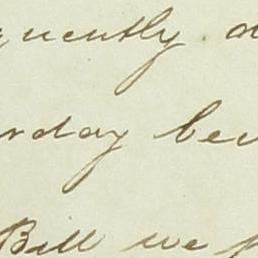 quently a
rday bec
Bill we p